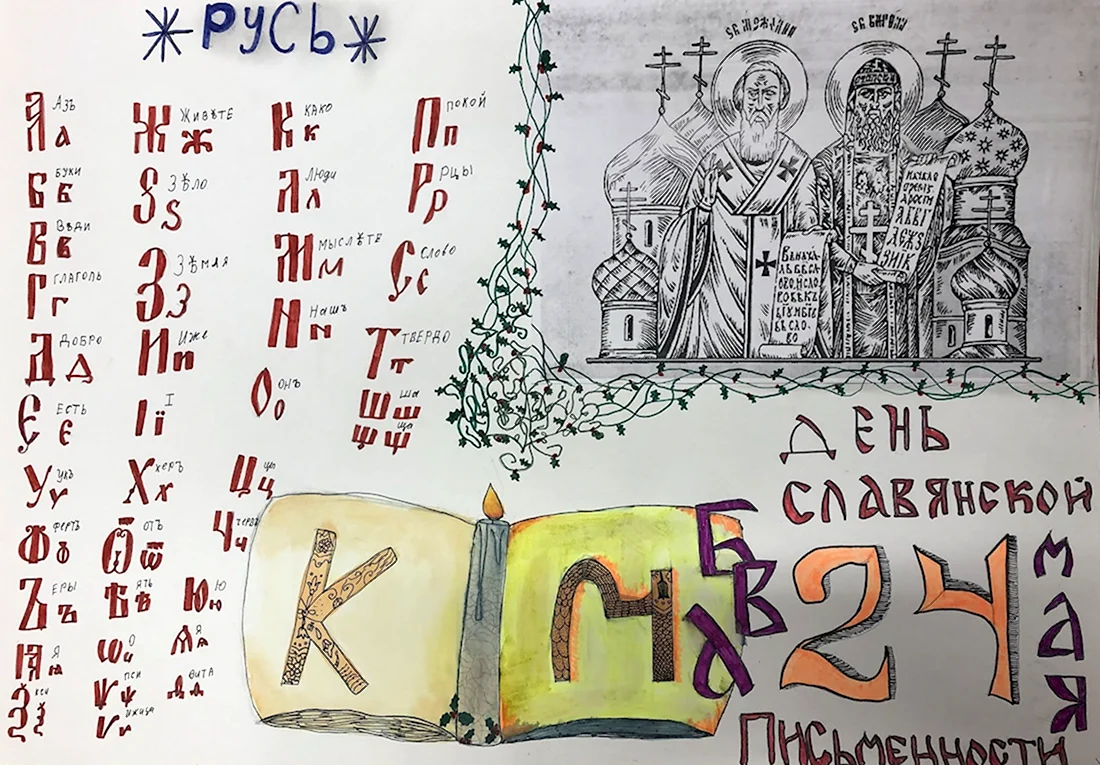 *РУСЬ*
Аа Азъ
Бб буки
Вв Вѣди
Гг глаголь
Дд добро
Єє есть
Уу укъ
Фф фертъ
Ъъ еры
Ѩѩ я
Ѯѯ кси
Жж живѣте
Ѕѕ зѣло
Зз зѣмля
Ии Иже
Її І
Хх херъ
Ѿѿ отъ
Ѣѣ ять
Ѡѡ о
Ѱѱ пси
Ѵѵ ижица
Кк како
Лл люди
Мм мыслѣте
Нн Нашъ
Оо онъ
Цц цы
Чч червь
Юю ю
Ѧѧ я
Ѳѳ фита
Пп покой
Рр рцы
Сс слово
Тт твердо
Шш ша
Щщ ща
К М
Б
В
Д
ДЕНЬ
СЛАВЯНСКОЙ
24
МАЯ
ПИСЬМЕННОСТИ